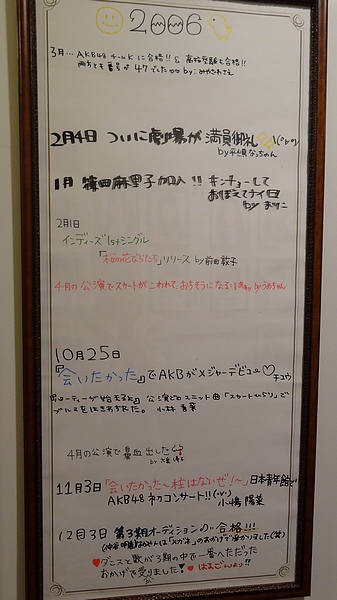 2006
3月… AKB48 チームKに合格!! & 高校受験も合格!!
両方とも番号が47でした by: みやざわさえ
2月4日 ついに劇場が満員御礼
by 平嶋なっちゃん
1月 篠田麻里子加入!! キンチョーして
おぼえてナイ
by まりこ
2月1日
インディーズ1stシングル
「桜の花びらたち」リリース by 前田敦子
4月の公演でスカートがこわれて、おちそうになる
10月25日
『会いたかった』でAKBがメジャーデビュー♡
公演でユニット曲「スカートひらり」で
4月の公演で鼻血出した
by 大島優子
11月3日「会いたかった〜柱はないぜ!〜」日本青年館で
AKB48 初コンサート!! 小嶋陽菜
12月3日 第3期オーディション 合格!!!
♥ダンスと歌が3期の中で一番へただった
おかげで受かりました! ♥ はるごんより!!